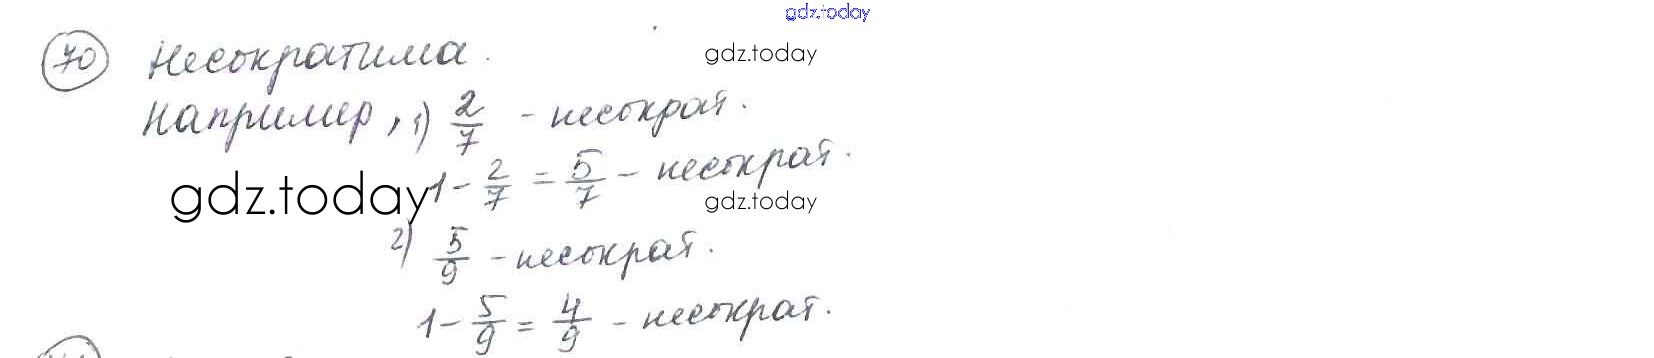 gdz.today
70 Несократима. gdz.today
Например, 1) 2/7 - несократ.
1 - 2/7 = 5/7 - несократ.
gdz.today gdz.today
2) 5/9 - несократ.
1 - 5/9 = 4/9 - несократ.